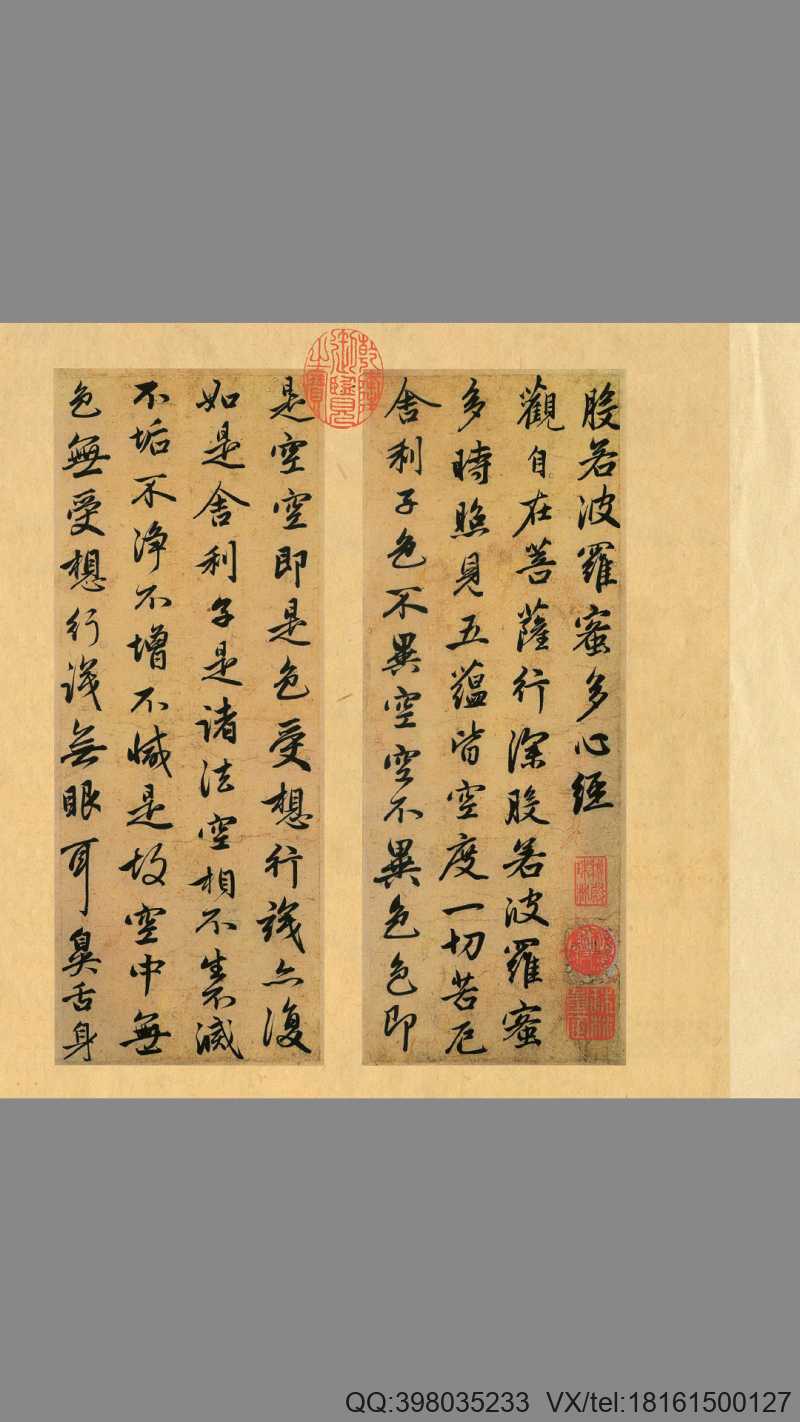 般若波羅蜜多心經
觀自在菩薩行深般若波羅蜜
多時照見五蘊皆空度一切苦厄
舍利子色不異空空不異色色即
乾隆御覽之寶
是空空即是色受想行識亦復
如是舍利子是諸法空相不生不滅
不垢不淨不增不減是故空中無
色無受想行識無眼耳鼻舌身
QQ:398035233 VX/tel:18161500127